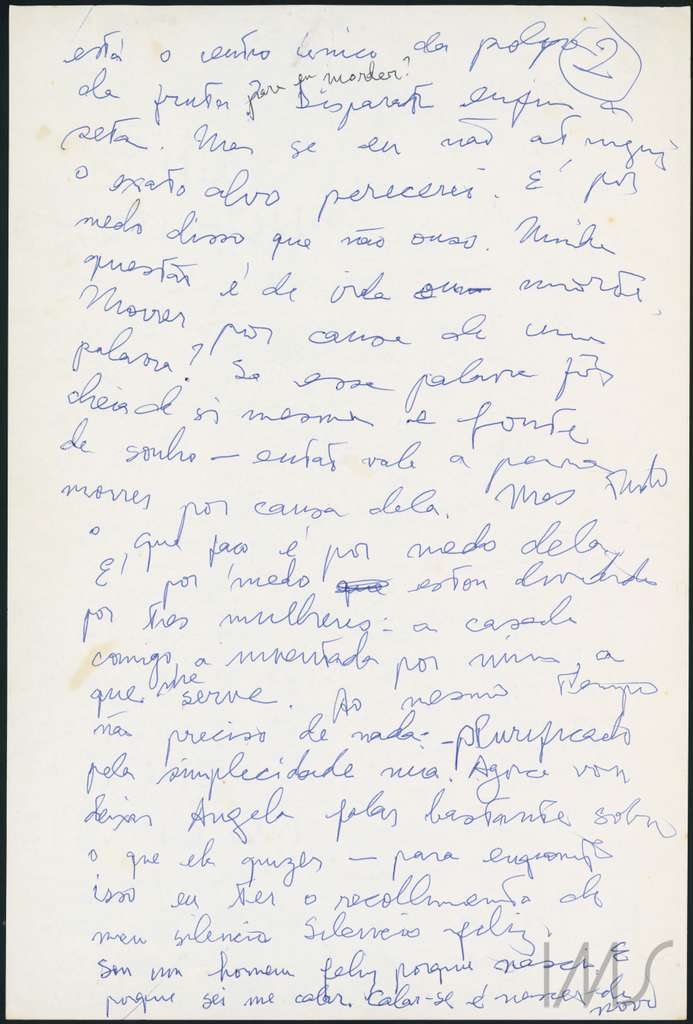 está o centro único da polpa 2
da fruta para eu morder? Disparate enfim a
seta. Mas se eu não atingir
o exato alvo perecerei. E é por
medo disso que não ouso. Minha
questão é de vida ou morte.
Morrer por causa de uma
palavra? Se essa palavra fôr
cheia de si mesma e fonte
de sonho — então vale a pena
morrer por causa dela. Mas tudo
o que faço é por medo dela.
E, por medo que estou dividido
por tres mulheres: a casada
comigo, a inventada por mim, a
que me serve. Ao mesmo tempo
não preciso de nada: purificado
pela simplecidade nua. Agora vou
deixar Angela falar bastante sobre
o que ela quizer — para enquanto
isso eu ter o recolhimento do
meu silencio Silencio feliz.
Sou um homem feliz porque nasci. E
porque sei me calar. Calar-se é nascer de novo
IMS